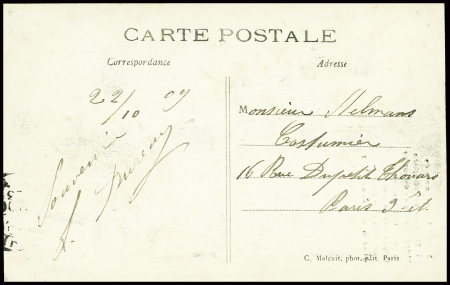 CARTE POSTALE
Correspondance
Adresse
22/10 09
Souvenir
Monsieur Stelmans
Costumier
16 Rue Dupetit Thouars
Paris 3e
C. Malcuit, phot. édit. Paris